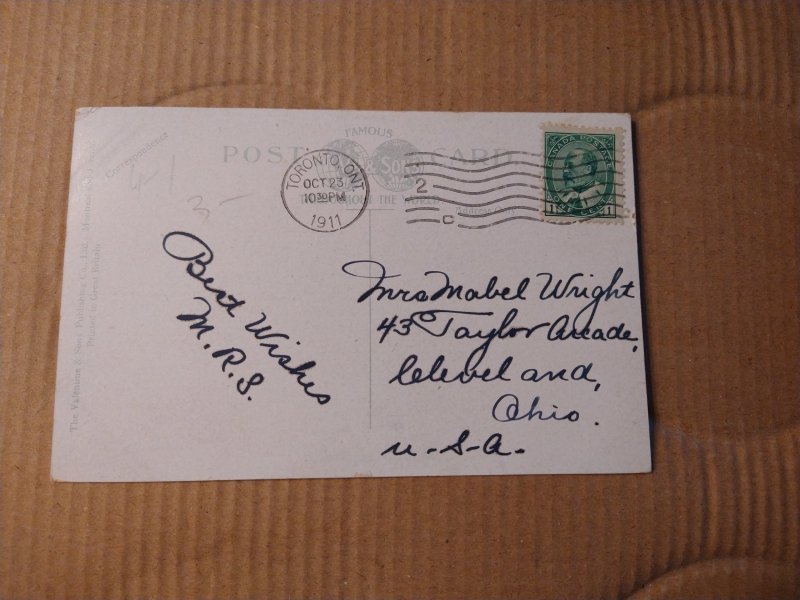 Correspondence
FAMOUS
POST CARD
& Sons
THROUGHOUT THE WORLD
Address Only
TORONTO, ONT.
OCT 23
10 30 PM
1911
2
C
CANADA POSTAGE
1 ONE CENT 1
3-
Best Wishes
M.R.S.
Mrs Mabel Wright
43 Taylor Arcade,
Cleveland,
Ohio.
U-S-A.
The Valentine & Sons Publishing Co., Ltd.,
Printed in Great Britain